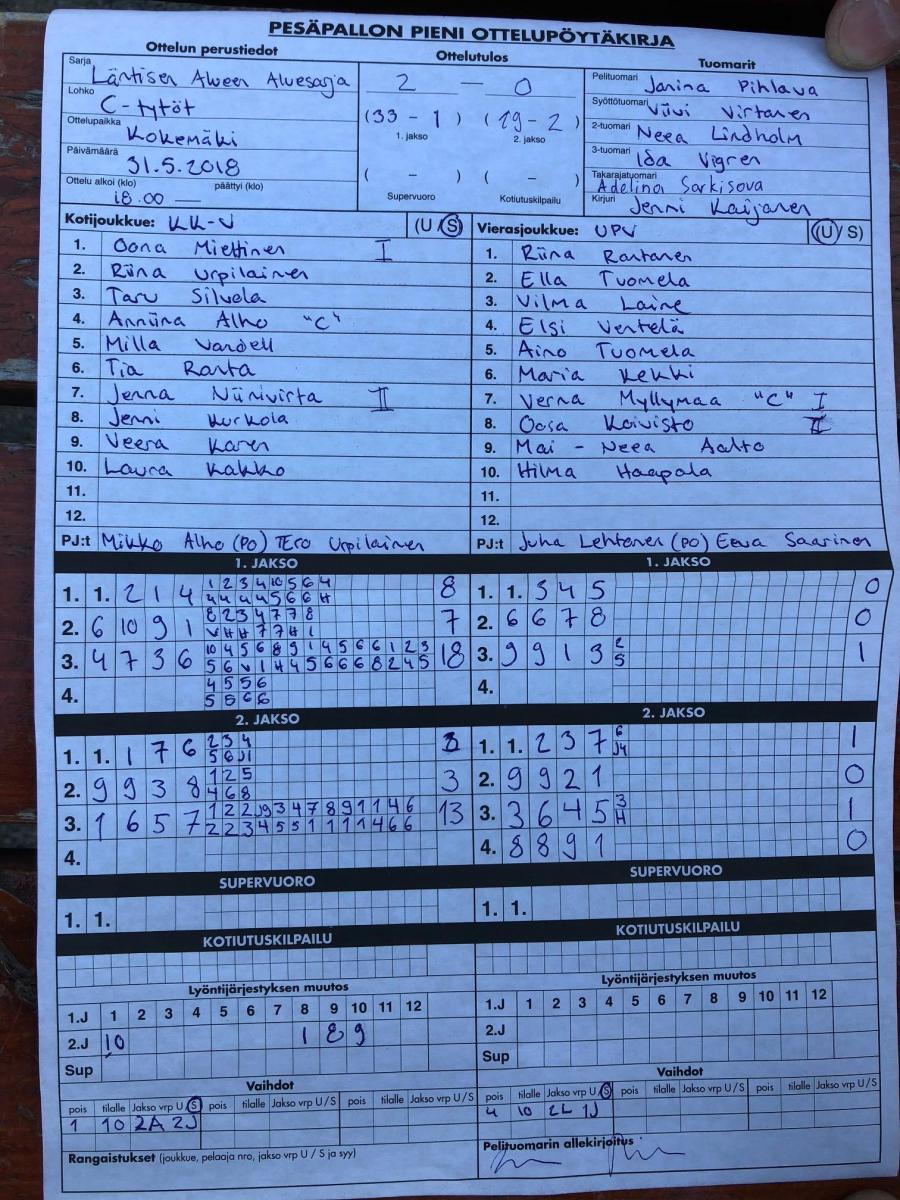 PESÄPALLON PIENI OTTELUPÖYTÄKIRJA
Ottelun perustiedot
Sarja Läntisen Alueen Aluesarja
Lohko C-tytöt
Ottelupaikka Kokemäki
Päivämäärä 31.5.2018
Ottelu alkoi (klo) päättyi (klo)
18.00 —
Ottelutulos
2 — 0
(33 - 1) (19 - 2)
1. jakso 2. jakso
( - ) ( - )
Supervuoro Kotiutuskilpailu
Tuomarit
Pelituomari Janina Pihlava
Syöttötuomari Viivi Virtanen
2-tuomari Neea Lindholm
3-tuomari Ida Vigren
Takarajatuomari Adelina Sarkisova
Kirjuri Jenni Kaijanen
Kotijoukkue: KK-V (U/S)
1. Oona Miettinen I
2. Riina Urpilainen
3. Taru Silvola
4. Anniina Alho "C"
5. Milla Vandell
6. Tia Ranta
7. Jenna Niinivirta II
8. Jenni Kurkola
9. Veera Karen
10. Laura Kakko
11.
12.
PJ:t Mikko Alho (PO) Tero Urpilainen
Vierasjoukkue: UPV (U/S)
1. Riina Rantanen
2. Ella Tuomela
3. Vilma Laine
4. Elsi Ventelä
5. Aino Tuomela
6. Maria Kekki
7. Verna Myllymaa "C" I
8. Oosa Koivisto II
9. Mai-Neea Aalto
10. Hilma Haapala
11.
12.
PJ:t Juha Lehtonen (PO) Eeva Saarinen
1. JAKSO
1. 1. 2 1 4 1 2 3 4 10 5 6 4 8
4 4 4 4 5 6 6 H
2. 6 10 9 1 8 2 3 4 7 7 8 7
V H H 7 7 H 1
3. 4 7 3 6 10 4 5 6 8 9 1 4 5 6 6 1 2 3 18
5 6 V 1 H 4 5 6 6 6 8 2 4 5
4. 4 5 5 6
5 5 6 6
1. JAKSO
1. 1. 3 4 5 0
2. 6 6 7 8 0
3. 9 9 1 3 2 1
5
4.
2. JAKSO
1. 1. 1 7 6 2 3 4 3
5 6 J1
2. 9 9 3 8 1 2 5 3
4 6 8
3. 1 6 5 7 1 2 2 J9 3 4 7 8 9 1 1 4 6 13
2 2 3 4 5 5 1 1 1 1 4 6 6
4.
2. JAKSO
1. 1. 2 3 7 6 1
J4
2. 9 9 2 1 0
3. 3 6 4 5 3 1
H
4. 8 8 9 1 0
SUPERVUORO
1. 1.
SUPERVUORO
1. 1.
KOTIUTUSKILPAILU
KOTIUTUSKILPAILU
Lyöntijärjestyksen muutos
1.J 1 2 3 4 5 6 7 8 9 10 11 12
2.J 10 1 8 9
Sup
Lyöntijärjestyksen muutos
1.J 1 2 3 4 5 6 7 8 9 10 11 12
2.J
Sup
Vaihdot
pois tilalle Jakso vrp U/S pois tilalle Jakso vrp U/S pois tilalle Jakso vrp U/S
1 10 2A 2J
Rangaistukset (joukkue, pelaaja nro, jakso vrp U / S ja syy)
Vaihdot
pois tilalle Jakso vrp U/S pois tilalle Jakso vrp U/S pois tilalle Jakso vrp U/S
4 10 2L 1J
Pelituomarin allekirjoitus